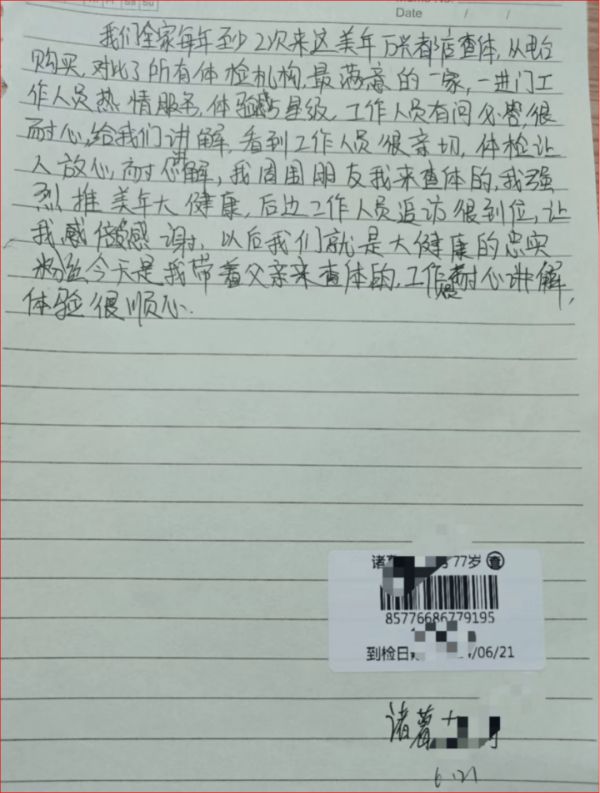 Date / /
我们全家每年至少2次来这美年万兴都店查体,从电台
购买,对比了所有体检机构,最满意的一家,一进门工
作人员热情服务,体验星级,工作人员有问必答,很
耐心,给我们讲解,看到工作人员很亲切,体检让
人放心,耐心讲解,我周围朋友我来查体的,我强
烈推美年大健康,后边工作人员追访很到位,让
我感倍感谢,以后我们就是大健康的忠实
粉丝,今天是我带着父亲来查体的,工作人员耐心讲解,
体验很顺心.
诸 77岁 查
85776686779195
到检日 /06/21
诸葛
6.21